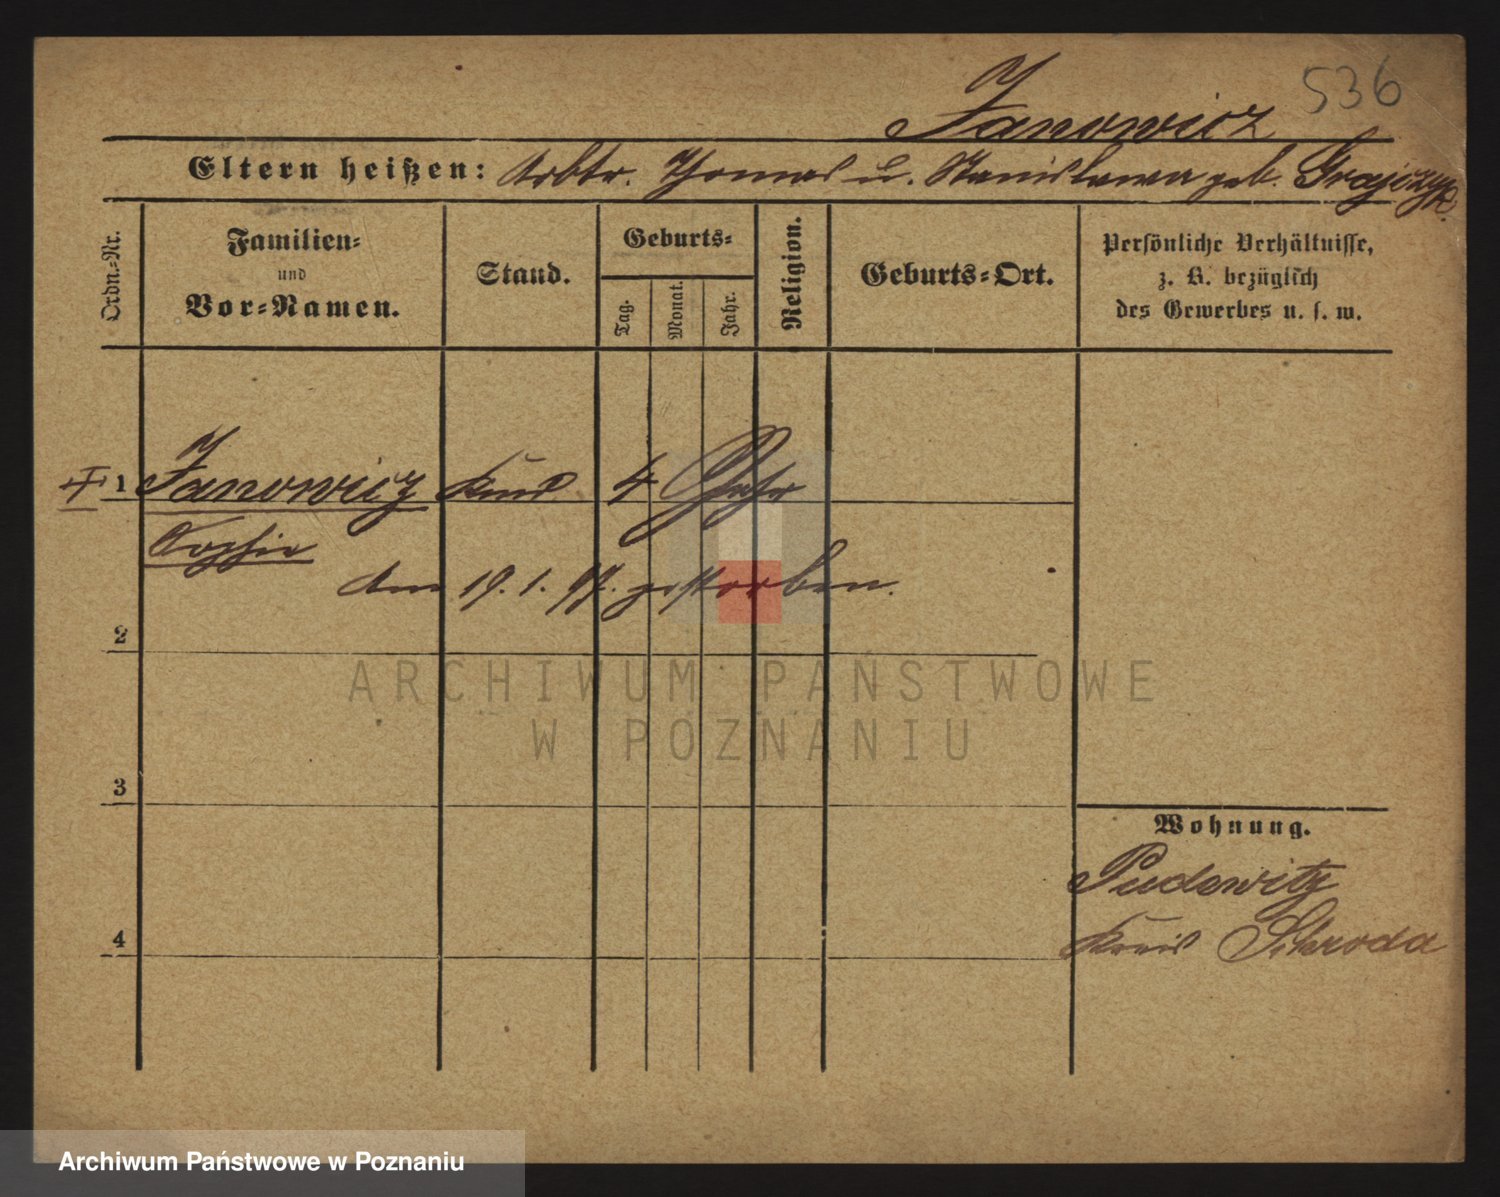 536
Janowicz
Eltern heißen: Arbtr. Thomas u. Stanislawa geb. Grajczyk.
Ordn.-Nr.
Familien- und Vor-Namen.
Stand.
Geburts-
Tag.
Monat.
Jahr.
Religion.
Geburts-Ort.
Persönliche Verhältnisse,
z. B. bezüglich
des Gewerbes u. s. w.
1 Janowicz Kind 4 Jahr
Am 19. 1. 97. gestorben.
2
ARCHIWUM PAŃSTWOWE
W POZNANIU
3
Wohnung.
Pudewitz
4
Kreis Schroda
Archiwum Państwowe w Poznaniu